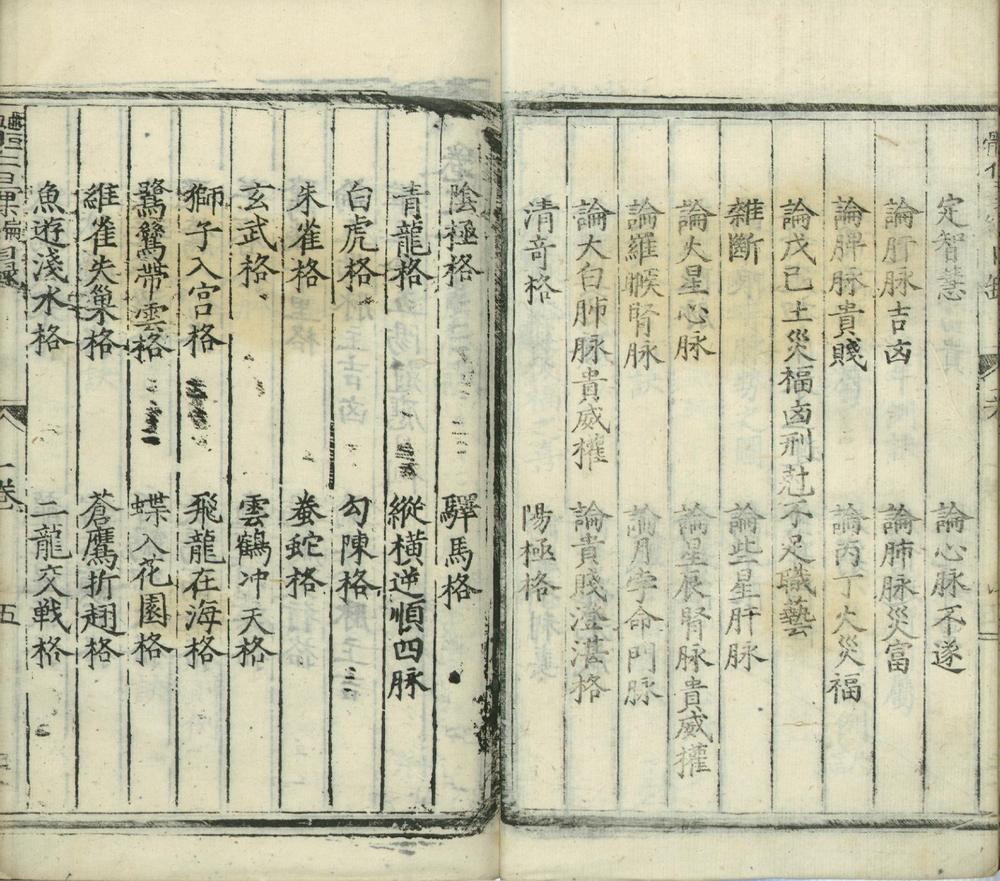 定智慧　論心脉不遂
論肝脉吉凶　論肺脉災富
論脾脉貴賤　論丙丁火災福
論戊己土災福凶刑愆不足職藝
雜斷　論些星肝脉
論火星心脉　論星辰腎脉貴威權
論羅睺腎脉　論月孛命門脉
論太白肺脉貴威權　論貴賤澄湛格
清竒格　陽極格
陰極格　驛馬格
青龍格　縱橫逆順四脉
白虎格　勾陳格
朱雀格　螣蛇格
玄武格　雲鶴冲天格
獅子入宮格　飛龍在海格
鷺鷥帶雲格　蝶入花園格
雀失巢格　蒼鷹折翅格
魚遊淺水格　二龍交戰格
卷　五